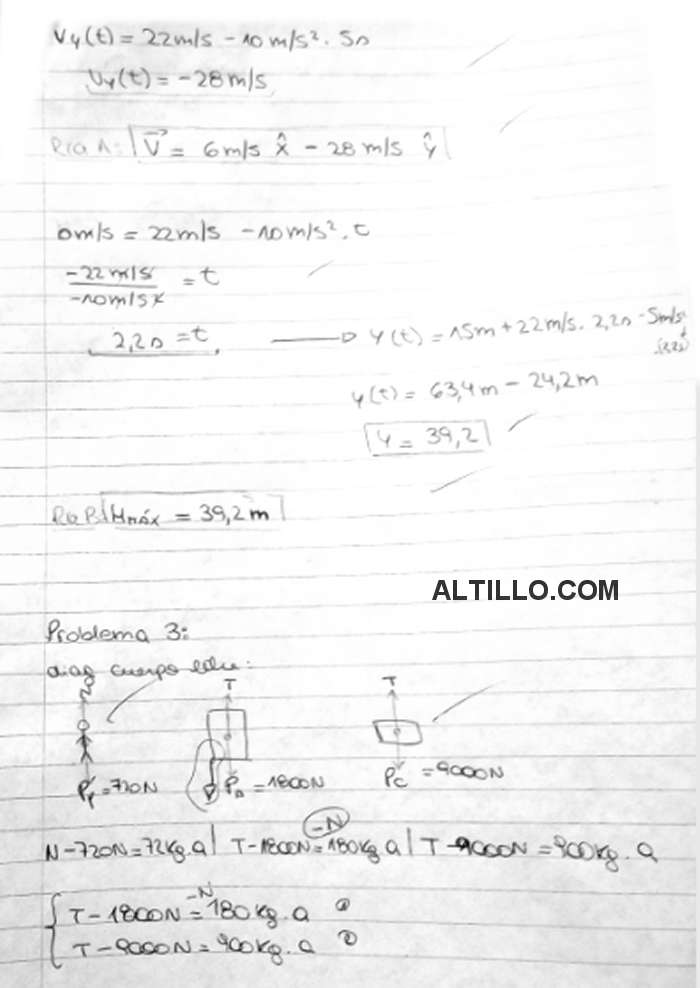 Vy(t) = 22m/s - 10m/s². 5s
Vy(t) = -28m/s
Rta A: V⃗ = 6m/s x̂ - 28m/s ŷ
0m/s = 22m/s - 10m/s². t
-22m/s
-10m/s² = t
2,2s = t → y(t) = 15m + 22m/s. 2,2s - 5m/s²
(2,2s)
y(t) = 63,4m - 24,2m
y = 39,2
Rta B: Hmáx = 39,2m
ALTILLO.COM
Problema 3:
diag cuerpo libre:
N T T
Pp = 720N PA = 1800N Pc = 9000N
-N
N - 720N = 72kg.a | T - 1800N = 180kg.a | T - 9000N = 900kg.a
-N
T - 1800N = 180kg.a ①
T - 9000N = 900kg.a ②